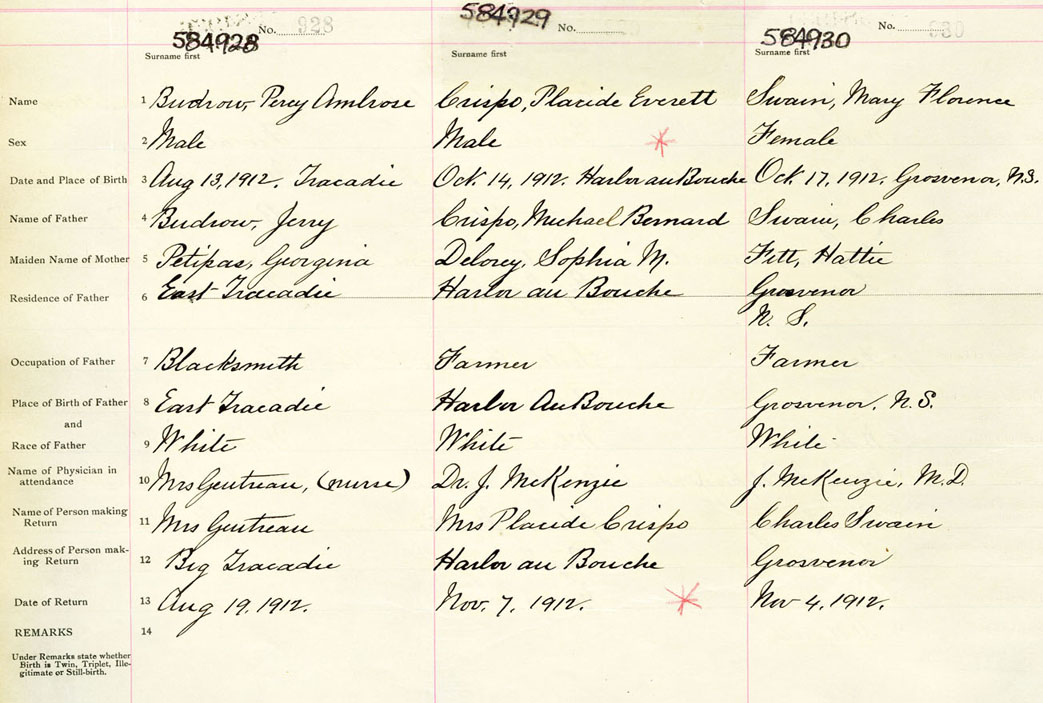 584928 584929 584930
No. 928 No. No. 930
Surname first Surname first Surname first
Name 1 Budrow, Percy Ambrose Crispo, Placide Everett Swain, Mary Florence
Sex 2 Male Male Female
Date and Place of Birth 3 Aug 13, 1912. Tracadie Oct. 14, 1912. Harbor au Bouche Oct. 17, 1912. Grosvenor, N.S.
Name of Father 4 Budrow, Jerry Crispo, Michael Bernard Swain, Charles
Maiden Name of Mother 5 Petipas, Georgina Delorey, Sophia M. Fitt, Hattie
Residence of Father 6 East Tracadie Harbor au Bouche Grosvenor
N. S.
Occupation of Father 7 Blacksmith Farmer Farmer
Place of Birth of Father 8 East Tracadie Harbor Au Bouche Grosvenor. N.S.
and
Race of Father 9 White White White
Name of Physician in
attendance 10 Mrs Geutreau, (nurse) Dr. J. McKenzie J. McKenzie, M.D.
Name of Person making
Return 11 Mrs Geutreau Mrs Placide Crispo Charles Swain
Address of Person mak-
ing Return 12 Big Tracadie Harbor au Bouche Grosvenor
Date of Return 13 Aug 19. 1912. Nov. 7, 1912. Nov 4, 1912.
REMARKS 14
Under Remarks state whether
Birth is Twin, Triplet, Ille-
gitimate or Still-birth.